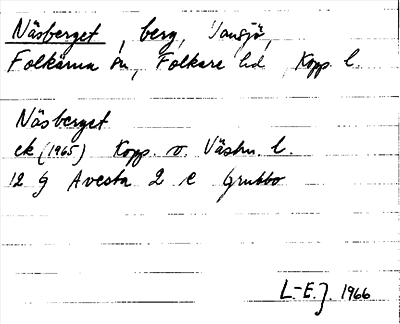 Näsberget, berg, Vansjö,
Folkärna sn, Folkare hd Kopp. l.
Näsberget
ek (1965) Kopp. o. Västm. l.
12 G Avesta 2 e Grubbo
L-E.J. 1966